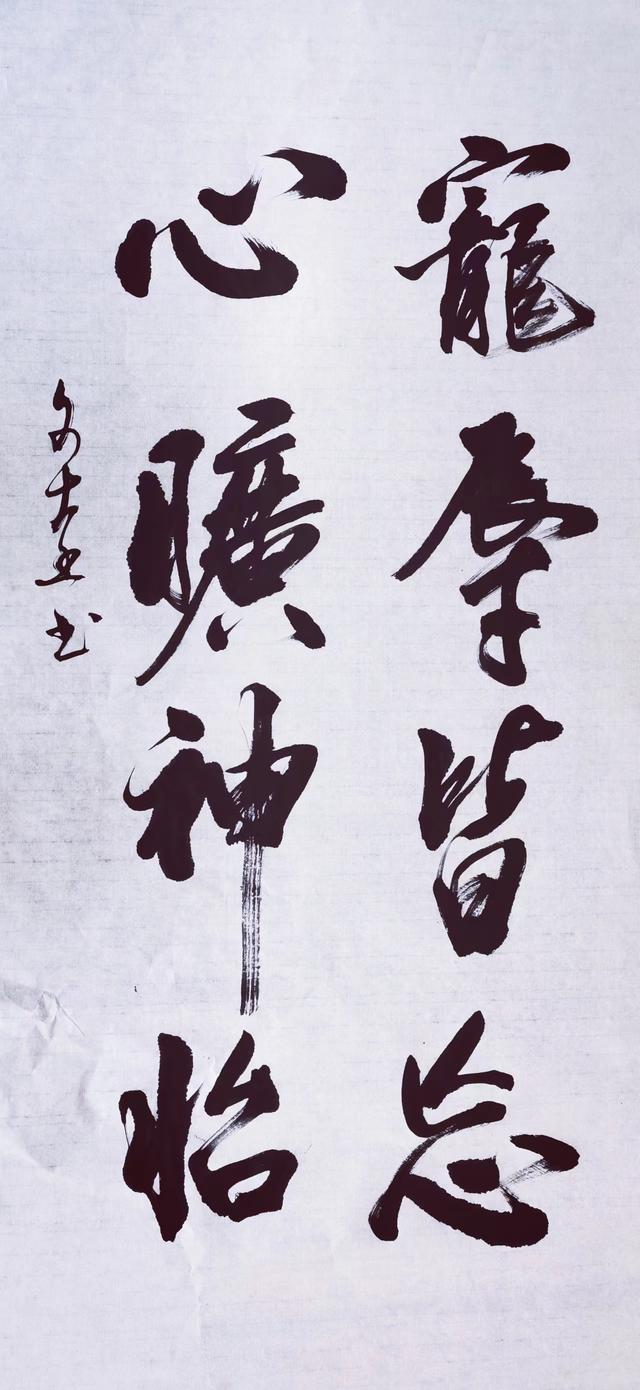 寵辱皆忘
心曠神怡
书